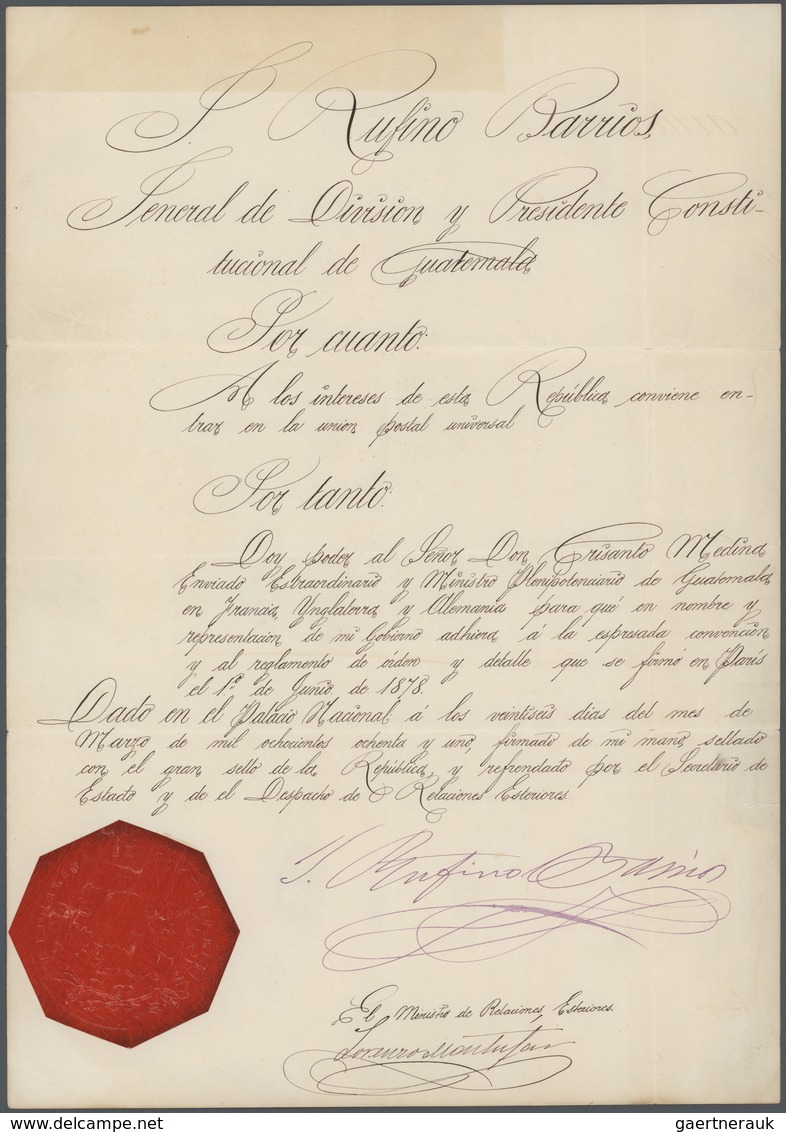 J. Rufino Barrios,
General de Division y Presidente Consti-
tucional de Guatemala
Por cuanto:
A los intereses de esta República conviene en-
trar en la union postal universal
Por tanto:
Doy poder al Señor Don Crisanto Medina
Enviado Estraordinario y Ministro Plenipotenciario de Guatemala
en Francia, Ynglaterra y Alemania para qué en nombre y
representacion de mi Gobierno adhiera á la espresada convención
y al reglamento de órden y detalle que se firmó en Paris
el 1º de Junio de 1878.
Dado en el Palacio Nacional á los veintiseis dias del mes de
Marzo de mil ochocientos ochenta y uno, firmado de mi mano, sellado
con el gran sello de la República, y refrendado por el Secretario de
Estado y de el Despacho de Relaciones Esteriores.
J. Rufino Barrios
El Ministro de Relaciones Esteriores.
Lorenzo Montufar
gaertnerauk